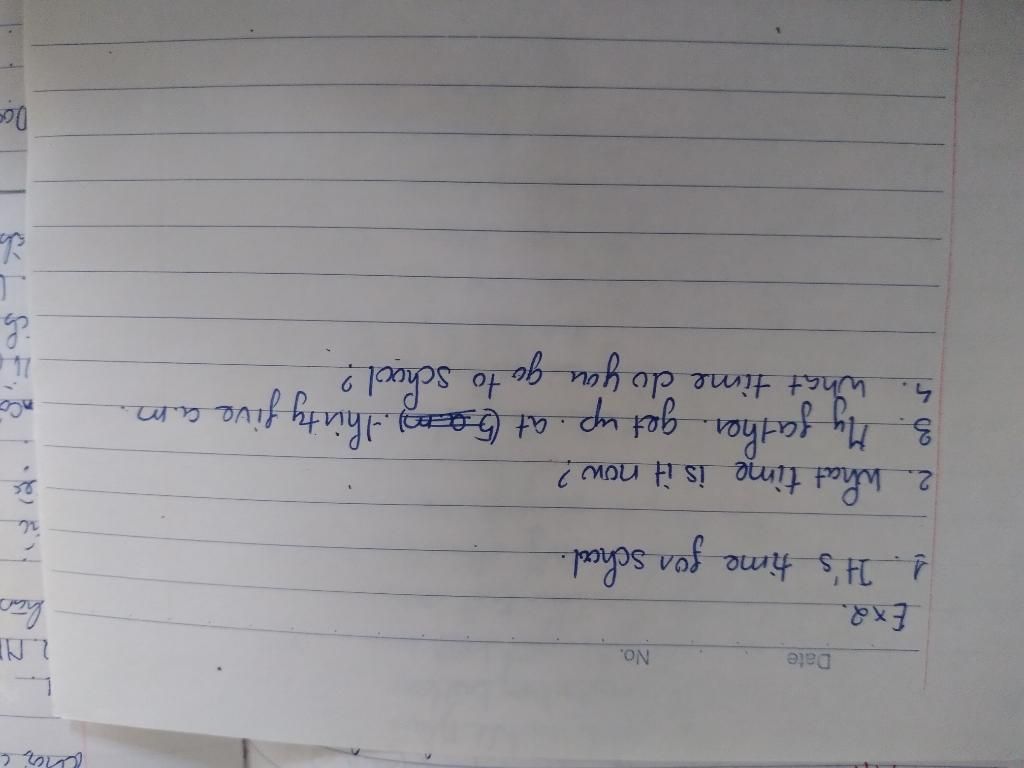 Date No.
Ex2.
1. It's time for school.
2. What time is it now?
3. My father. get up. at (5 a.m). thirty five a.m.
4. What time do you go to school?